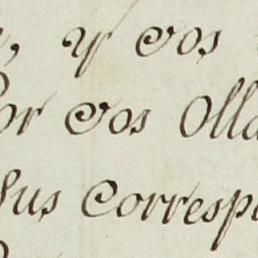 , y vos
Por vos Olla
sus corresp